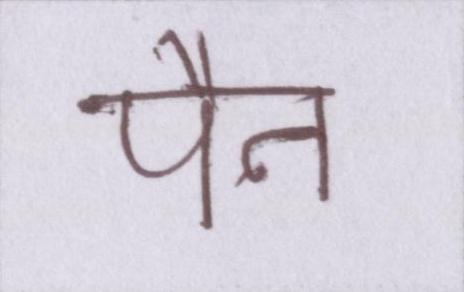 पैन